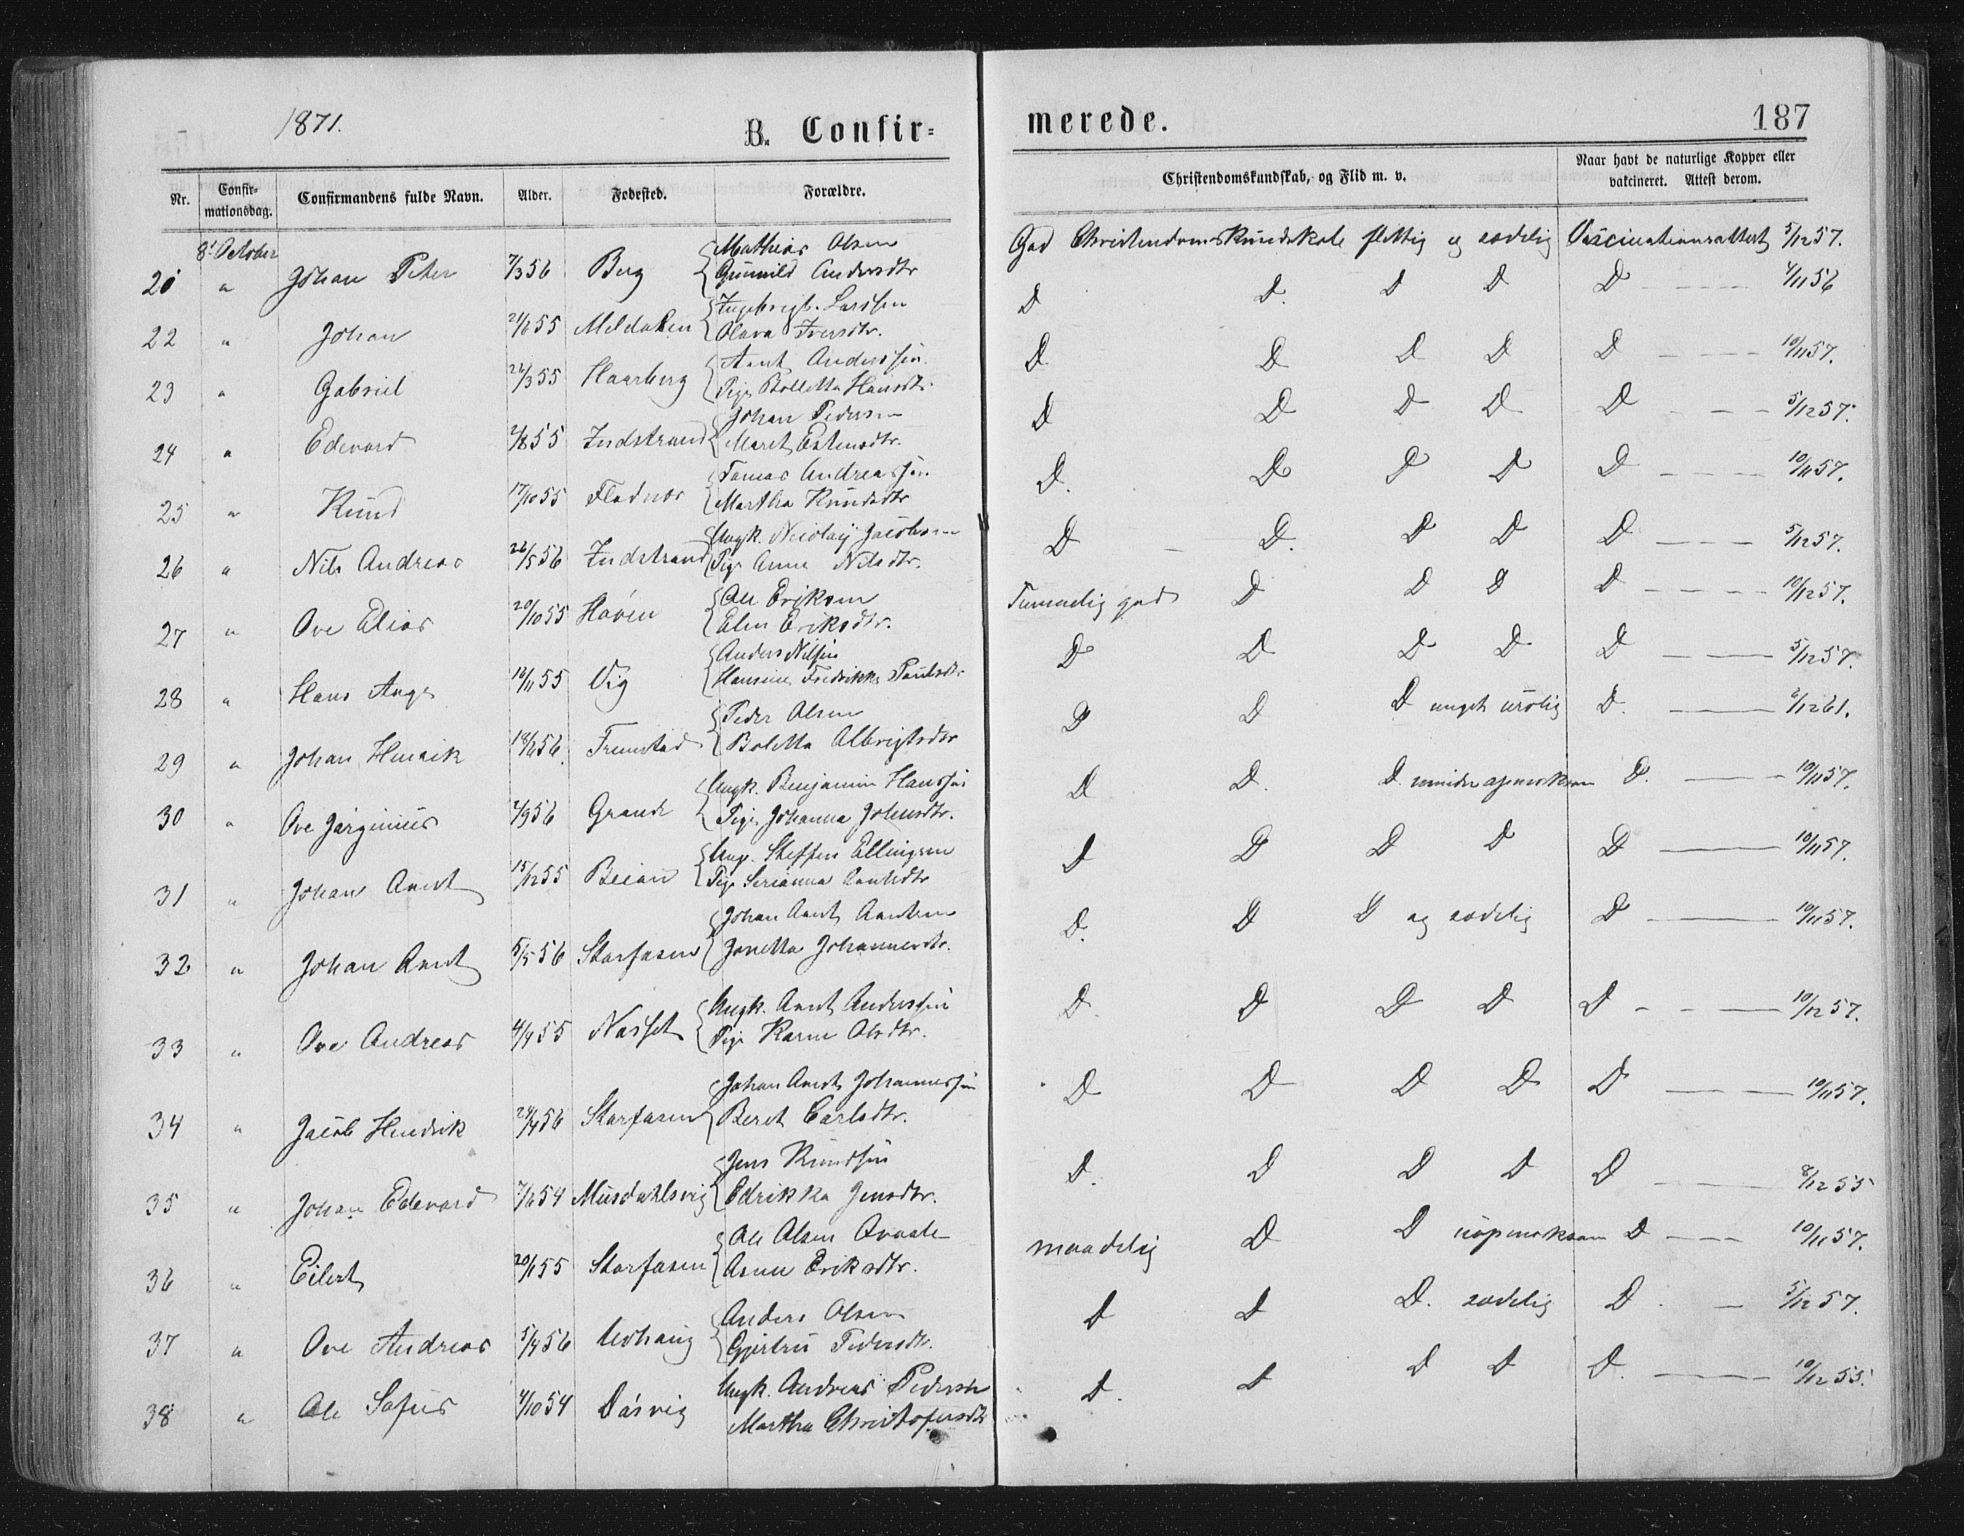 1871.
B. Confir=
merede.
187
Nr.
Confir-
mationsdag.
Confirmandens fulde Navn.
Alder.
Fødested.
Forældre.
Christendomskundskab, og Flid m. v.
Naar havt de naturlige Kopper eller
vakcineret. Attest derom.
8' October
21 " Johan Peter 7/3 56 Berg Mathias Olsen
Gunnild Andersdtr
God Christendomskundskab flittig og sædelig Vaccinationsattest 5/12 57.
22 " Johan 21/6 55 Meldalen Ingebrigt Larssen
Olava Iversdtr.
D D. D D D - - - - 4/11 56
23 " Gabriel 22/3 55 Haarberg Arnt Anderssen
Pige Bolletta Hansdtr.
D D D D D - - - 10/11 57.
24 " Edevard 2/8 55 Indstrand Johan Pedersen
Maret Estensdtr.
D D D D D - - - 5/12 57.
25 " Knud 17/10 55 Fladnes Tomas Andreassen
Martha Knudsdtr
D. D D D D - - - 10/11 57.
26 " Nils Andreas 26/5 56 Indstrand Ungk. Nicolaij Jacobsen
Pige Anne Nilsdtr.
D - D. D D D - - - 5/12 57.
27 " Ove Elias 20/10 55 Høven Ole Eriksen
Elen Eriksdtr.
Temmelig god D D D D - - - 10/12 57.
28 " Hans Aage 10/11 55 Vig Anders Nilsen
Hansine Fredrikke Paulsdtr
D D D D D - - 5/12 57.
29 " Johan Henrik 18/6 56. Fremstad Peder Olsen
Boletta Albrigtsdtr
D D D meget urolig D. - - 6/12 61.
30 " Ove Jørginius 2/9 56 Grande Ungk. Benjamin Hanssen
Pige Johanna Johnsdtr.
D D. D. mindre opmerksom D. - - 10/11 57.
31 " Johan Arnt 15/12 55 Beian Ung. Steffen Ellingsen
Pige Serianna Arntsdtr
D D D D D - - 10/11 57.
32 " Johan Arnt 5/5 56 Storfosen Johan Arnt Arntsen
Jonetta Johannesdtr.
D. D D og sædelig D - - 10/11 57.
33 " Ove Andreas 4/9 55 Næsset Ungk. Arnt Anderssen
Pige Karen Olsdtr.
D. D D D D - - - 10/12 57.
34 " Jacob Hendrik 24/4 56 Storfosen Johan Arnt Johannessen
Beret Carlsdtr.
D D D D D - - - 10/11 57.
35 " Johan Edevard 7/6 54 Musdahlsvig Jens Knudsen
Edrikka Jensdtr.
D. D D D D - - - 8/12 55
36 " Eilert 20/1 55 Storfosen Ole Olsen
Anne Eriksdtr.
maadelig D D uopmerksom D - - - 10/11 57.
37 " Ove Andreas 5/4 56 Uvhaug Anders Olsen
Gjertru Pedersdtr.
D D D. sædelig D - 5/12 57.
38 " Ole Sofus 4/10 54 Døsvig Ungk. Andreas Pedersen
Martha Christofersdtr
D. D D D D. - - - 10/12 55.